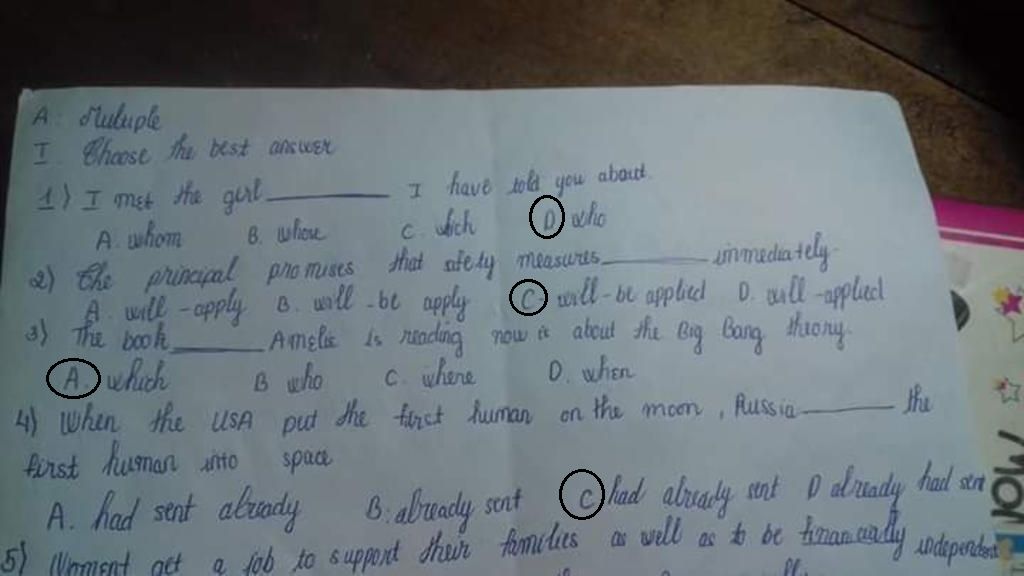 A: Multuple
I. Choose the best answer
1) I met the girl __________ I have told you about.
A. whom B. whose C. which D. who
2) The principal promises that safety measures __________ immediately.
A. will-apply B. will-be apply C. will-be applied D. will-applied
3) The book __________ Amelie is reading now is about the Big Bang theory.
A. which B who C. where D. when
4) When the USA put the first human on the moon, Russia __________ the
first human into space
A. had sent already B. already sent C had already sent D already had sent
5) Woment get a job to support their families as well as to be financially independent